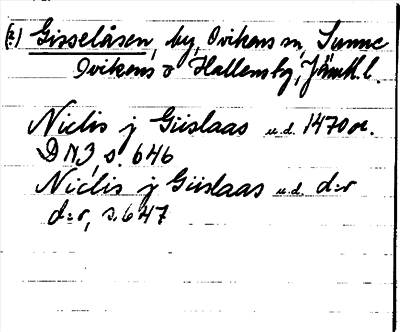 Gisselåsen, by, Ovikens sn, Sunne
Ovikens o Hallens tg, Jämtl. l.
Niclis j Giislaas u.d. 1470 or.
DN3, s. 646
Niclis j Giislaas u.d. d:o
d:o, s. 647